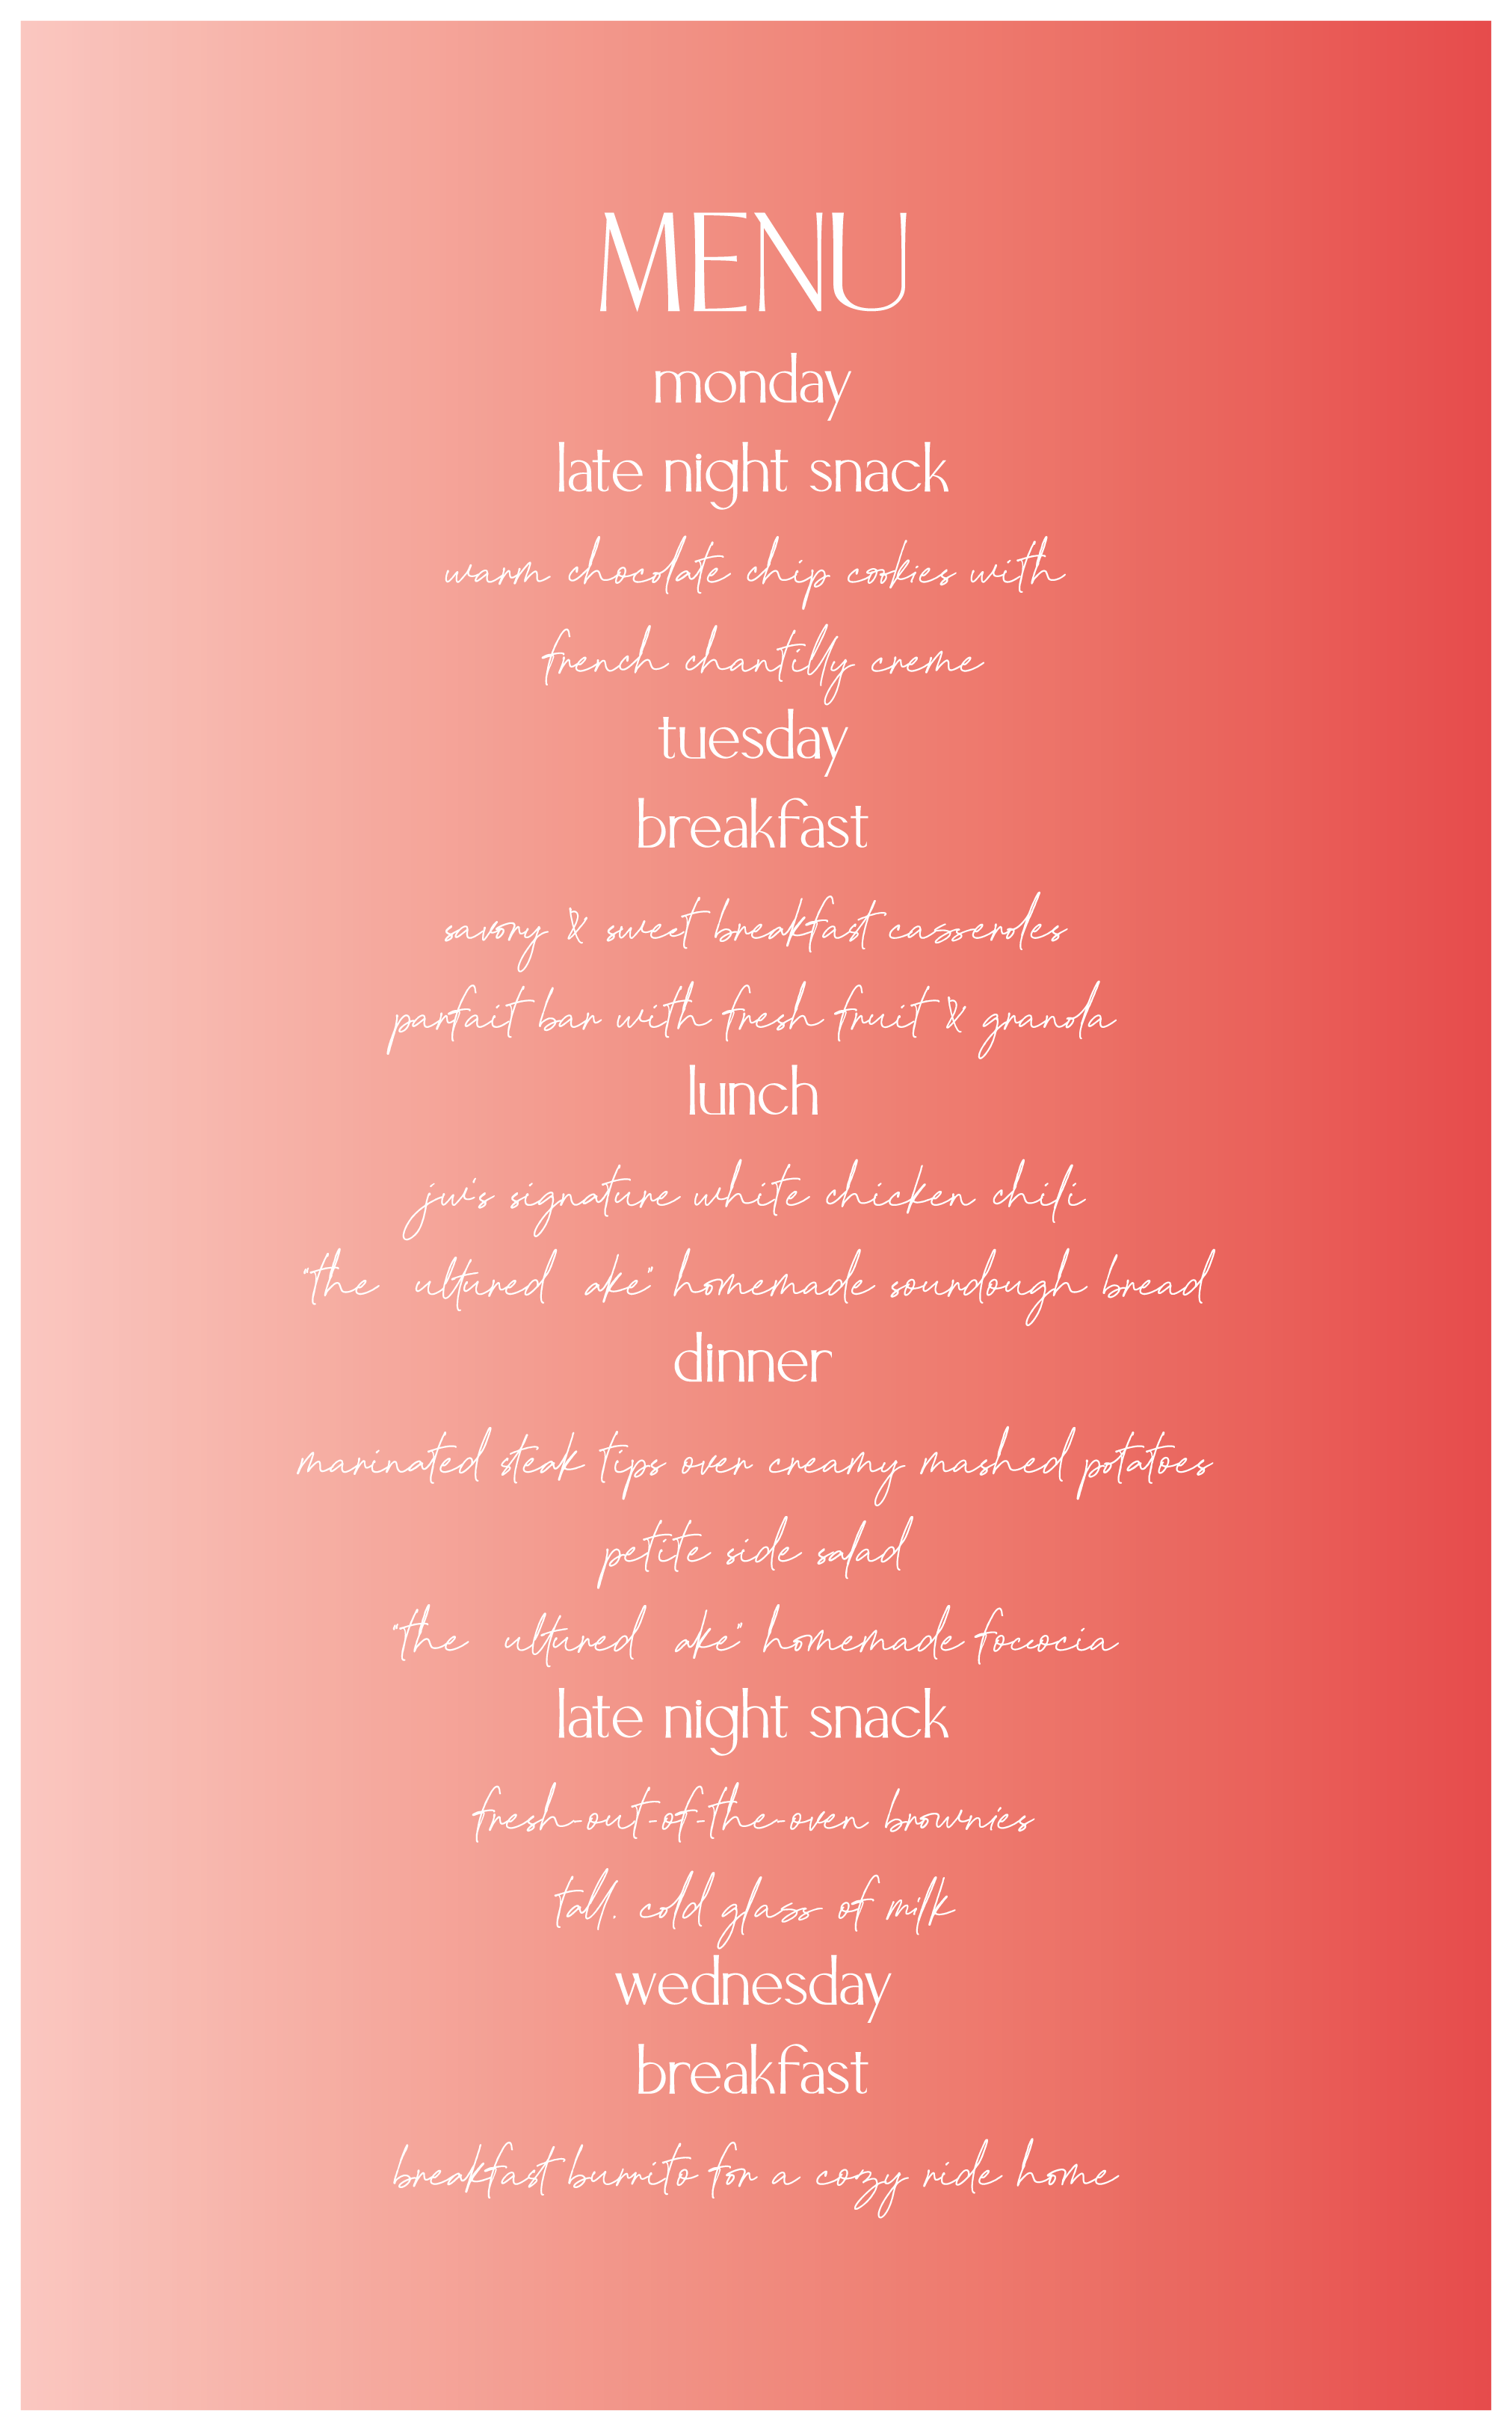 MENU
monday
late night snack
warm chocolate chip cookies with
french chantilly creme
tuesday
breakfast
savory & sweet breakfast casseroles
parfait bar with fresh fruit & granola
lunch
jw's signature white chicken chili
"the ultured ake" homemade sourdough bread
dinner
marinated steak tips over creamy mashed potatoes
petite side salad
"the ultured ake" homemade foccocia
late night snack
fresh-out-of-the-oven brownies
tall, cold glass of milk
wednesday
breakfast
breakfast burrito for a cozy ride home